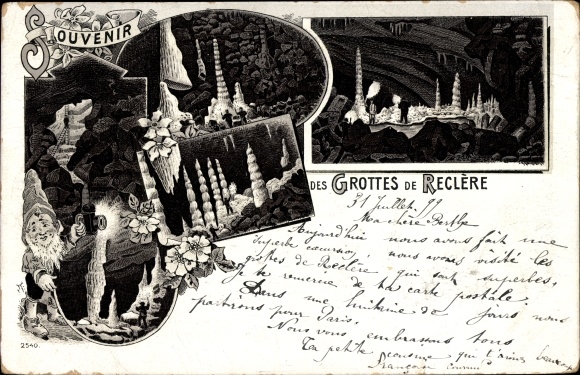 SOUVENIR
DES GROTTES DE RECLÈRE
31 Juillet 99
Ma chère Berthe
Aujourd'hui nous avons fait une
superbe course, nous avons visité les
grottes de Reclère, qui sont superbes.
Je te remercie de ta carte postale.
Dans une huitaine de jours nous
partirons pour Paris.
Nous vous embrassons tous
Ta petite cousine qui t'aime beaucoup
Françoise
2540.